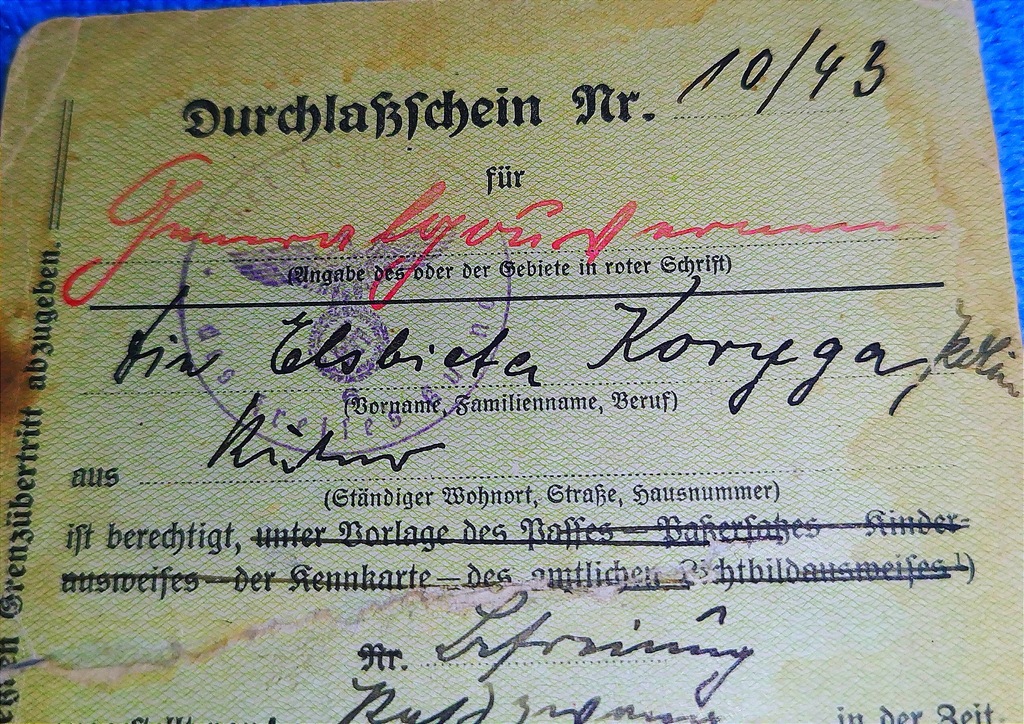 Durchlaßschein Nr. 10/43
für
Generalgouvernement
(Angabe des oder der Gebiete in roter Schrift)
Elsbieta Koryga,
(Vorname, Familienname, Beruf)
aus
(Ständiger Wohnort, Straße, Hausnummer)
ist berechtigt, unter Vorlage des Passes – Paßersatzes – Kinder-
ausweises – der Kennkarte – des amtlichen Lichtbildausweises ¹)
Nr. Befreiung
in der Zeit
Grenzübertritt abzugeben.